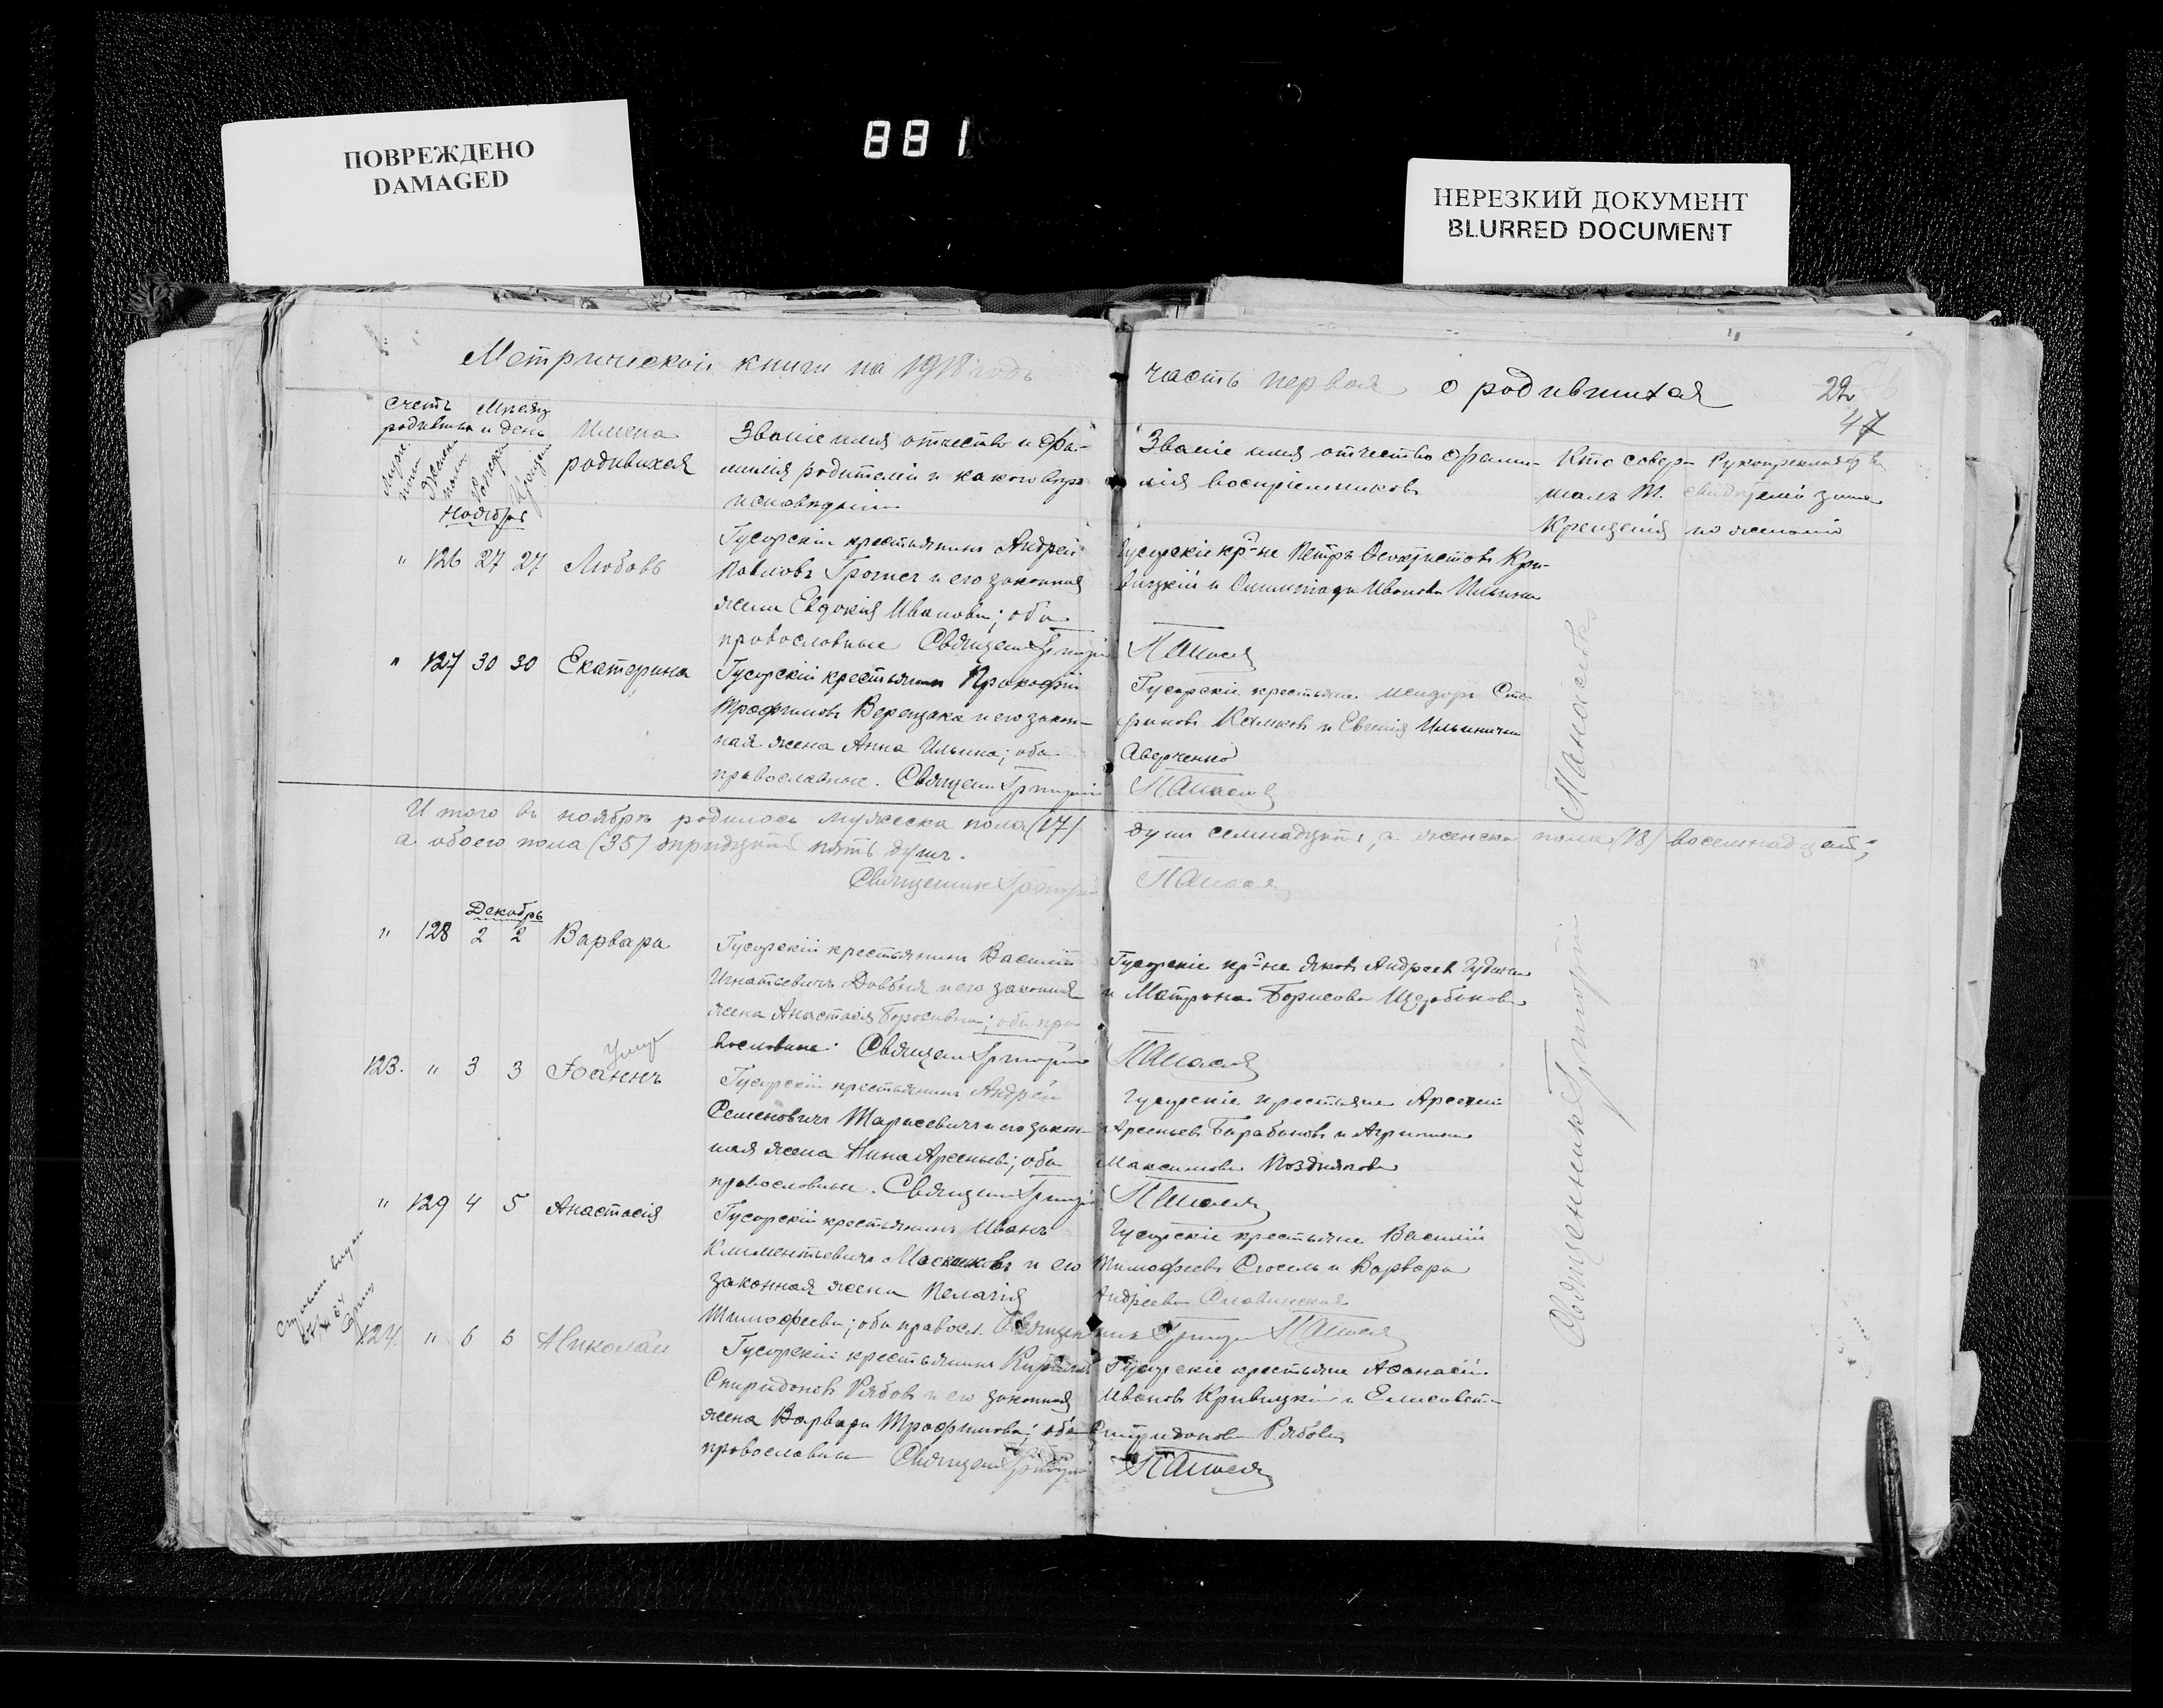 ПОВРЕЖДЕНО
DAMAGED
881
НЕРЕЗКИЙ ДОКУМЕНТ
BLURRED DOCUMENT
Метрической книги на 1918 годъ часть первая о родившихся
22
47
Счетъ родивших
Мѣсяц и день
Имена родившихся
Званіе имя отчество и фа-
милія родителей и какого вѣро
исповѣданія
Званіе имя отчество фами-
лія воспріемниковъ
Кто совер-
шалъ Т.
Крещенія
Ноябрь
" 126 27 27 Любовь
Гусарскій крестьянинъ Андрей
Павловъ и его законная
жена Евдокія Иванова; оба
православные Священ Григорій
Гусарскіе кр-не Петръ Кри-
вицкій и Иванова Ильина
" 127 30 30 Екатерина
Гусарскій крестьянинъ Прокофій
Трофимовъ Верещака и его закон-
ная жена Анна Ильина; оба
православные. Священ Григорій
Гусарскіе крестьяне Исидоръ Сте-
фановъ и Евгенія Ильинична
Аверченко
Итого въ ноябрѣ родилось мужеска пола (17) душъ семнадцать, а женска пола (18) восемнадцать;
а обоего пола (35) тридцать пять душъ.
Священник Григорій
Декабрь
" 128 2 2 Варвара
Гусарскій крестьянинъ Василій
Игнатьевичъ Довбня и его законная
жена Анастасія Борисовна; оба пра
вославные. Священ Григорій
Гусарскіе кр-не Яковъ Андреев
и Матрона Борисова Щербакова
123. " 3 3 Іоаннъ
Умер
Гусарскій крестьянинъ Андрей
Семеновичъ Тарасевичъ и его закон-
ная жена Нина Арсеньева; оба
православные. Священ Григорій
Гусарскіе крестьяне Арсений
Арсеньев Барабановъ и Агрипина
Максимова Позднякова
" 129 4 5 Анастасія
Гусарскій крестьянинъ Иванъ
Климентьевичъ и его
законная жена Пелагія
Тимофеева; оба правосл. Священник Григорій
Гусарскіе крестьяне Василій
Тимофеевъ и Варвара
Андреева Славинская
124. " 6 6 Николай
Гусарскій крестьянинъ Кирилъ
Спиридоновъ Рябовъ и его законная
жена Варвара Трофимова; оба
православные Священ Григорій
Гусарскіе крестьяне Афанасій
Ивановъ Кривицкій и Елисавета
Спиридонова Рябова
Священникъ Григорій